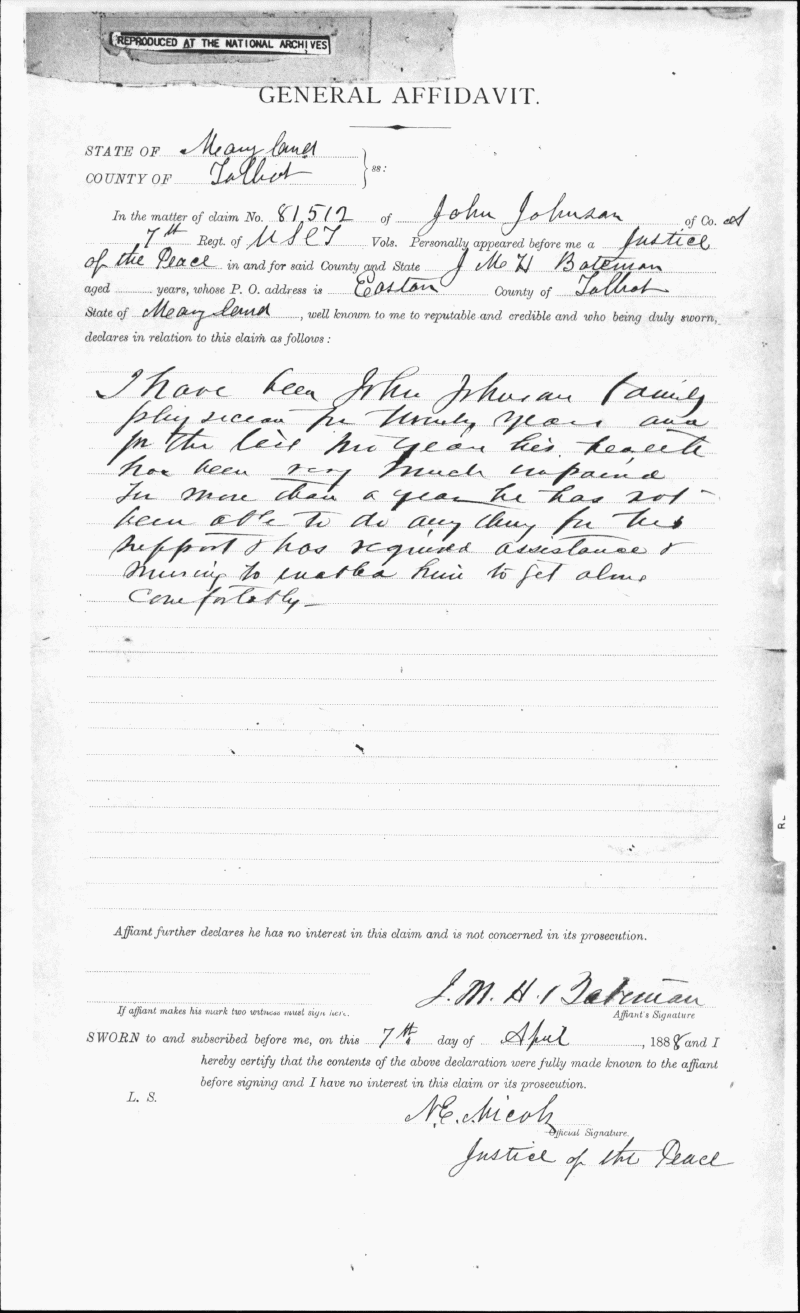 REPRODUCED AT THE NATIONAL ARCHIVES
GENERAL AFFIDAVIT.
STATE OF Maryland
COUNTY OF Talbot } ss:
In the matter of claim No. 81,512 of John Johnson of Co. A
7th Regt. of USCT Vols. Personally appeared before me a Justice
of the Peace in and for said County and State J M H Bateman
aged years, whose P. O. address is Easton County of Talbot
State of Maryland, well known to me to reputable and credible and who being duly sworn,
declares in relation to this claim as follows:
I have been John Johnson family
physician for twenty years and
for the last two years his health
has been very much impaired
For more than a year he has not
been able to do any thing for his
support & has required assistance &
nursing to enable him to get along
comfortably—
Affiant further declares he has no interest in this claim and is not concerned in its prosecution.
J. M. H. Bateman
If affiant makes his mark two witness must sign here.
Affiant's Signature
SWORN to and subscribed before me, on this 7th day of April, 1888 and I
hereby certify that the contents of the above declaration were fully made known to the affiant
before signing and I have no interest in this claim or its prosecution.
L. S.
N. E. Nicols
Official Signature.
Justice of the Peace